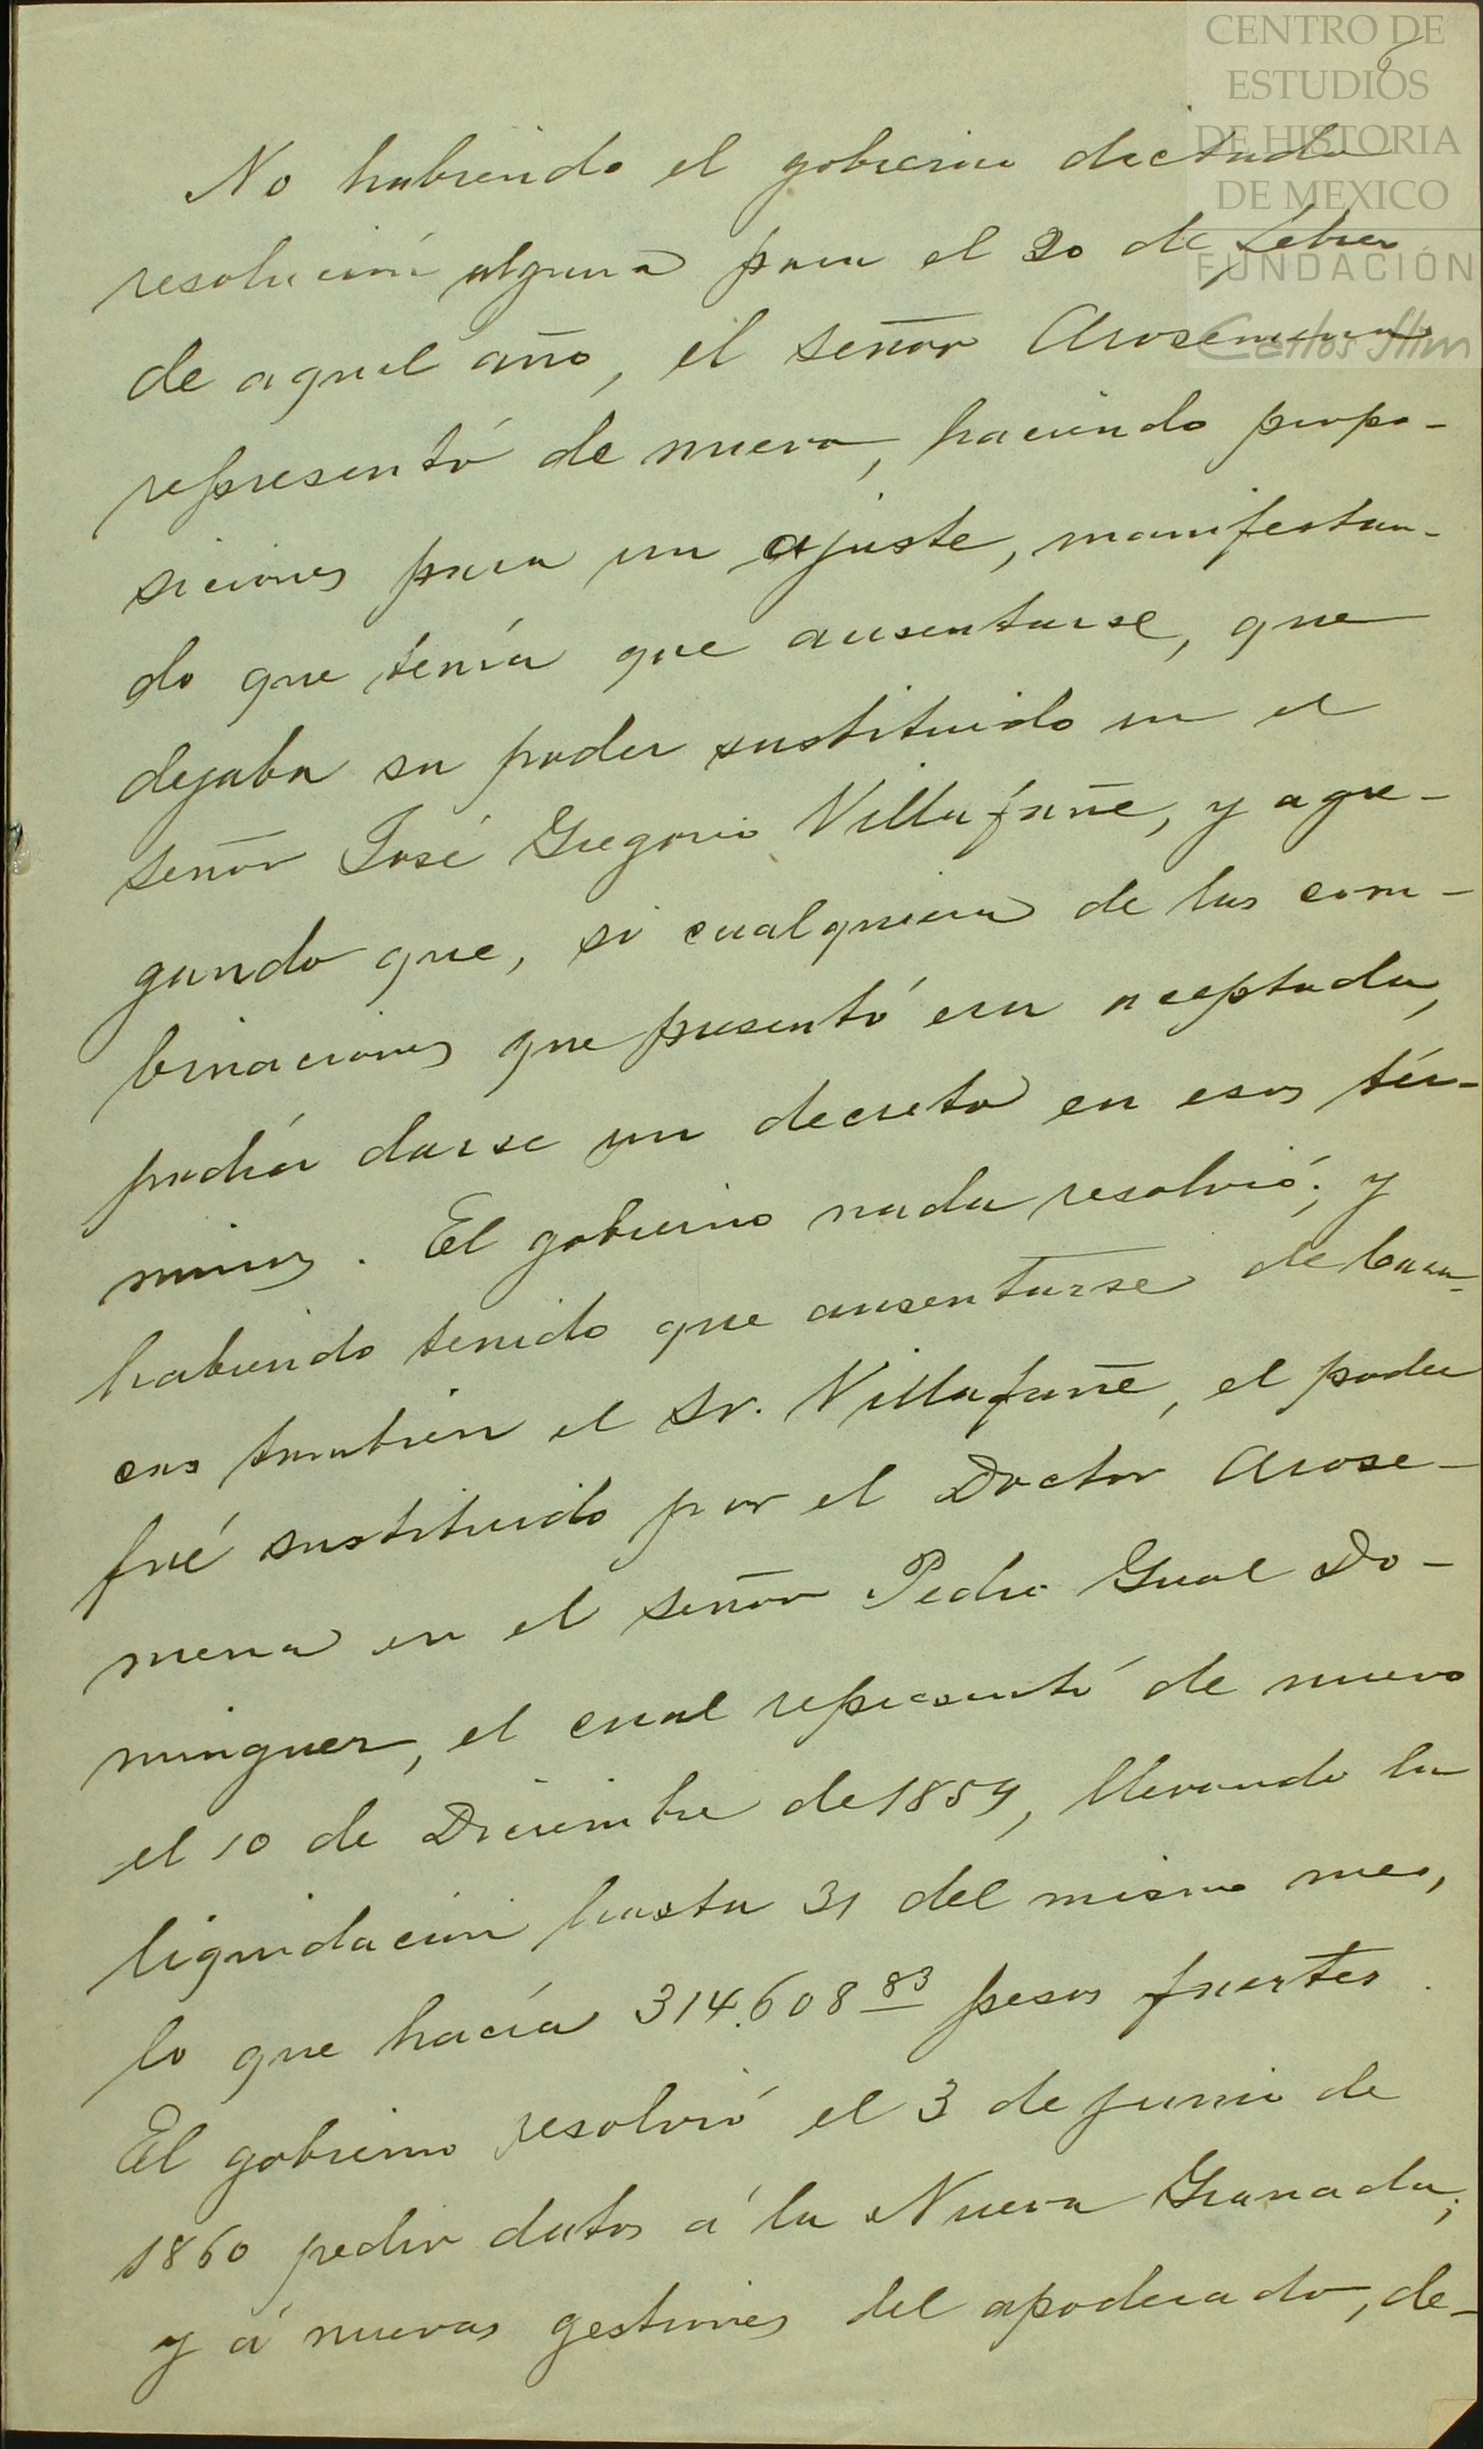 CENTRO DE
ESTUDIOS
DE HISTORIA
DE MEXICO
FUNDACIÓN
Carlos Slim
6
No habiendo el gobierno dictado
resolución alguna para el 20 de febrero
de aquel año, el señor Arosemena
representó de nuevo, haciendo propo-
siciones para un ajuste, manifestan-
do que tenía que ausentarse, que
dejaba su poder sustituido en el
señor José Gregorio Villafañe, y agre-
gando que, si cualquiera de las com-
binaciones que presentó era aceptada,
podía darse un decreto en esos tér-
minos. El gobierno nada resolvió; y
habiendo tenido que ausentarse de Cara-
cas también el Sr. Villafañe, el poder
fué sustituido por el Doctor Arose-
mena en el señor Pedro Gual Do-
minguez, el cual representó de nuevo
el 10 de Diciembre de 1859, llevando la
liquidación hasta 31 del mismo mes,
lo que hacía 314.608 83 pesos fuertes.
El gobierno resolvió el 3 de junio de
1860 pedir datos á la Nueva Granada;
y á nuevas gestiones del apoderado, de-